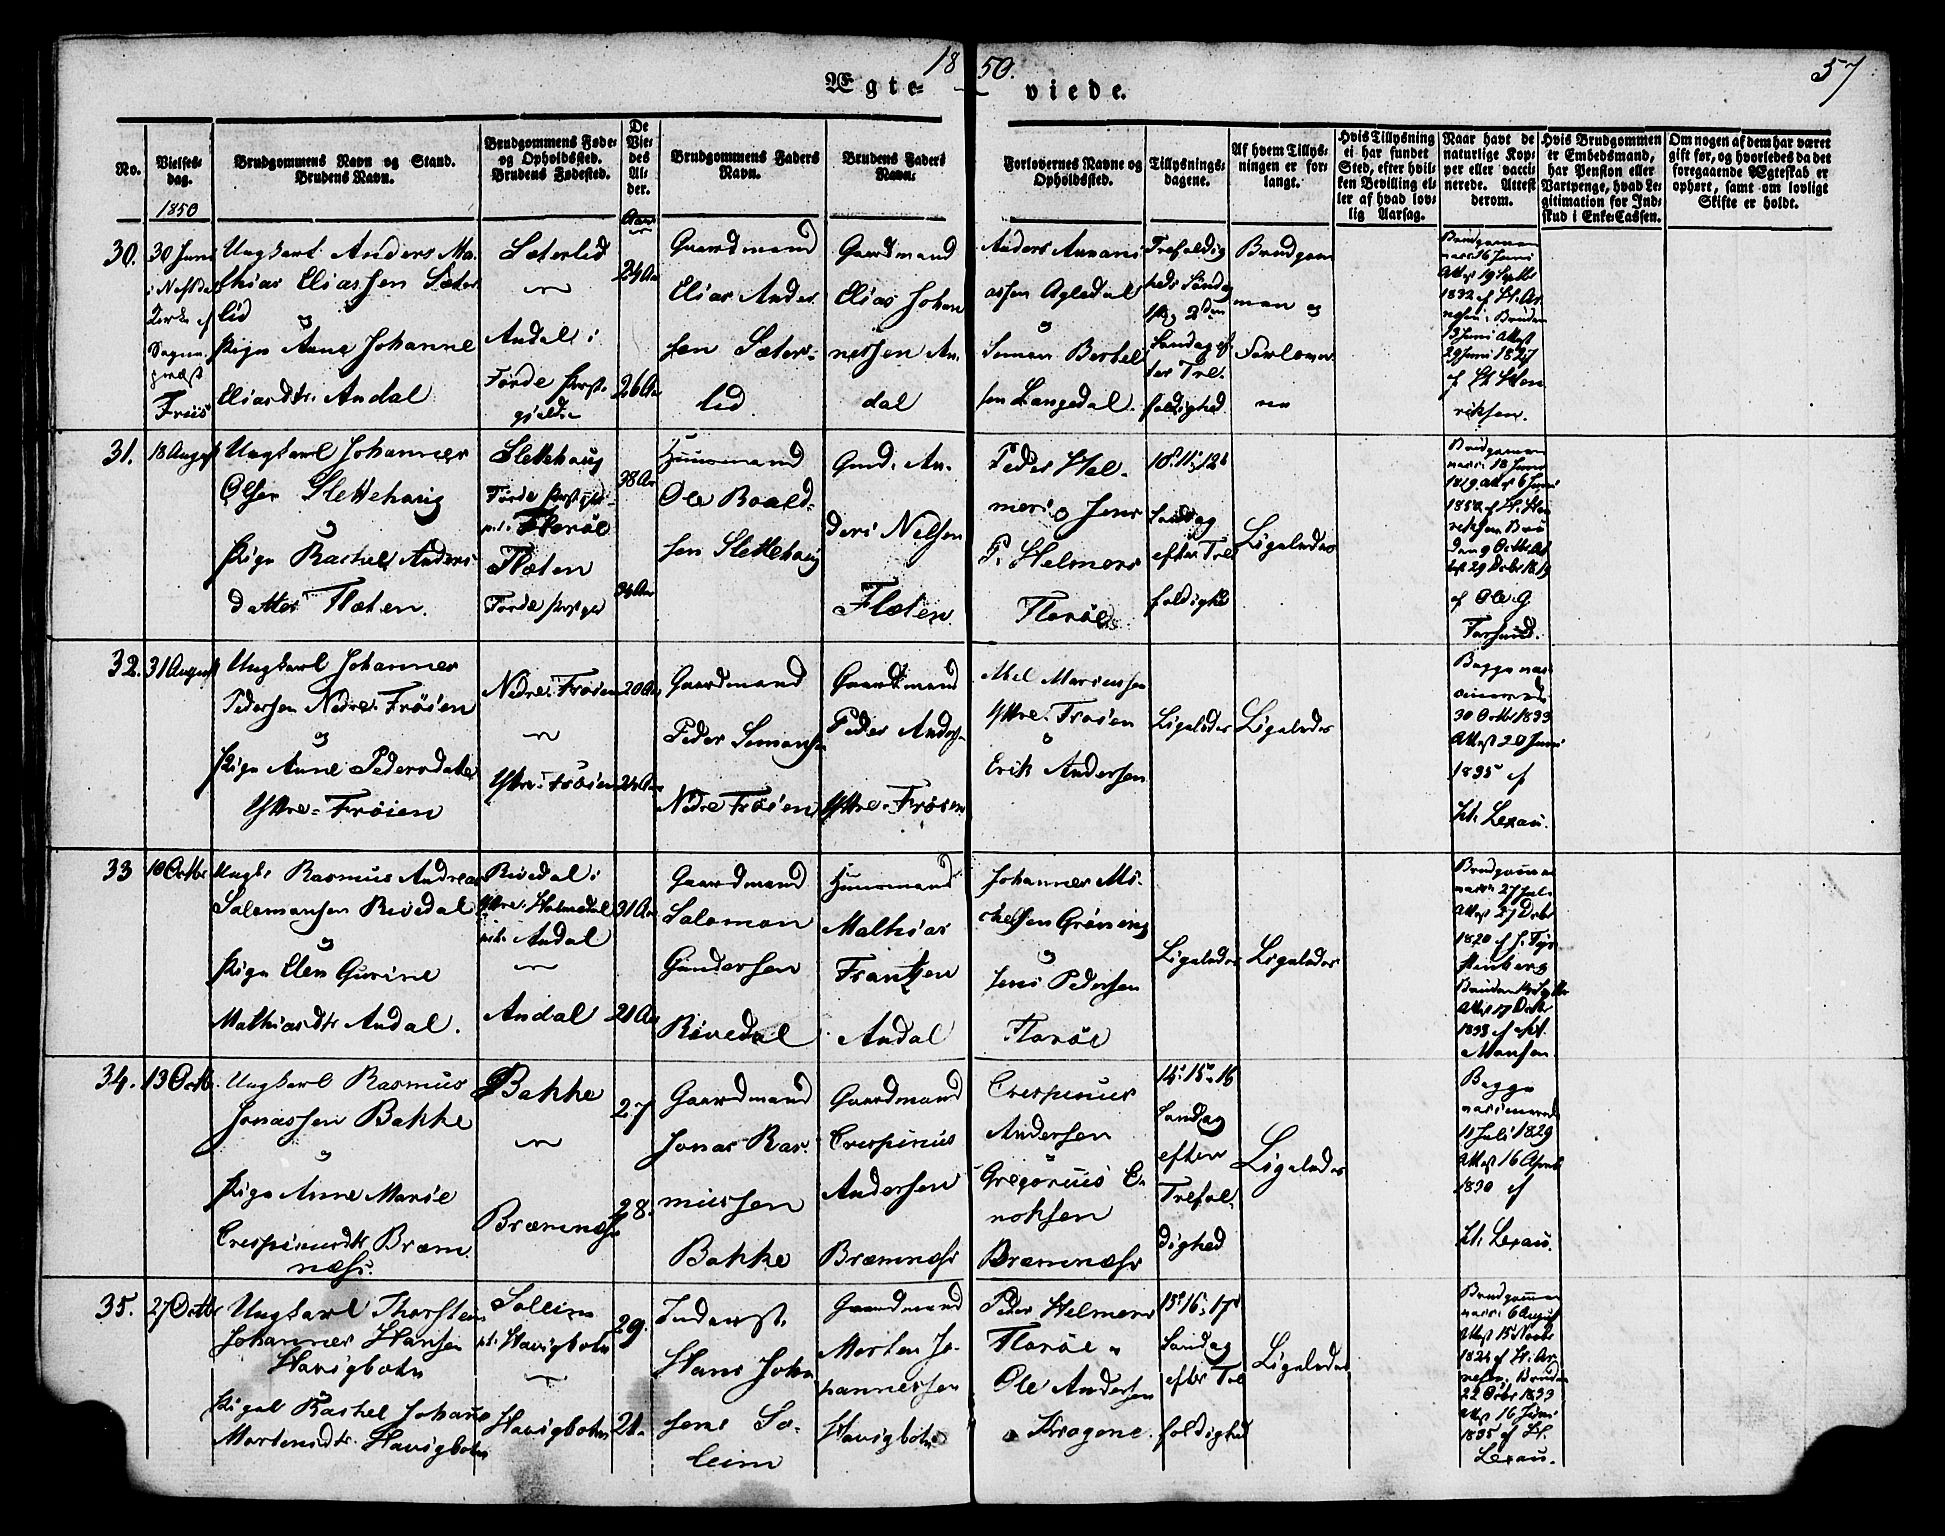 18 50. 57
Ægte- viede.
No.
Vielses-
dag.
1850
Brudgommens Navn og Stand.
Brudens Navn.
Brudgommens Føde-
og Opholdssted.
Brudens Fødested.
De
Vie-
des
Al-
der.
Aar
Brudgommens Faders
Navn.
Brudens Faders
Navn.
Forlovernes Navne og
Opholdssted.
Tillysnings-
dagene.
Af hvem Tillys-
ningen er for-
langt.
Hvis Tillysning
ei har fundet
Sted, efter hvil-
ken Bevilling el-
ler af hvad lov-
lig Aarsag.
Naar havt de
naturlige Kop-
per eller vacci-
nerede. Attest
derom.
Hvis Brudgommen
er Embedsmand,
har Pension eller
Vartpenge, hvad Le-
gitimation for Ind-
skud i Enke-Cassen.
Om nogen af dem har været
gift før, og hvorledes da det
foregaaende Ægteskab er
ophørt, samt om lovligt
Skifte er holdt.
30.
30 Juni
i
Kirke af
Sogne-
præst
Friis
Ungkarl Anders Ma-
thias Eliassen Sæter
lid
og
Pige Anne Johanne
Eliasdtr. Andal
Sæterlid
Andal i
Førde Præst-
gjeld
24 Aar
26 Aar
Gaardmand
Elias Ander
sen Sæter-
lid
Gaardmand
Elias Johan
nessen An-
dal
Anders Annani
assen Agledal
og
Simon Bertel
sen Langedal.
Trefoldig
heds Søndag
1st og 2den
Søndag ef-
ter Tre-
foldighed
Brudgom
men og
Forlover
ne
Brudgommen
vacc. 16 Juni
Attest 19 Septbr
1832 af H. Ar
nesen. Bruden
13 Juni Attest
29 Juni 1827
af H. Hen
riksen.
31.
18 August
Ungkarl Johannes
Olsen Slettehaug
og
Pige Rachel Anders
datter Flæten.
Slettehaug
Førde Præstgjeld
Florøe
Flæten
Førde Præstgjd
38 Aar
Huusmand
Ole Roald-
sen Slettehaug
Gmd. An-
ders Nelsen
Flæten
Peder Hel-
mers og Jens
P. Helmers
Florøe
10. 11. 12te
Søndag
efter Tre
foldighd
Ligeledes
Brudgommen
vacc. 18 Juni
1819 Attest 6 Juni
af H. Hen
riksen Bru
den 9 Octbr At
test 29 Decbr 1819
af Ole G.
32.
31 August
Ungkarl Johannes
Pedersen Nedre-Frøien
og
Pige Anne Pedersdatter
Yttre-Frøien
Nedre-Frøien
Yttre-Frøien
20 Aar
24 Aar
Gaardmand
Peder Simonsen
Nedre Frøien
Gaardmand
Peder Andersen
Yttre-Frøien
Abel Mariussen
Yttre-Frøien
og
Erik Andersen
Ligeledes
Ligeledes
Begge vac-
cinerede
30 Octbr 1833
Attest 20 Juni
1835 af
Kl. Lexau.
33
10 Octbr
Ungk. Rasmus Andreas
Salomonsen Rivedal
og
Pige Elen Gurine
Mathiasdtr Andal.
Rivedal i
Yttre Holmedal
Andal
Andal
31 Aar
21 Aar
Gaardmand
Salomon
Gundersen
Rivedal
Huusmand
Mathias
Frantzen
Andal
Johannes Mi-
chelsen Grøning
og
Jens Pedersen
Florøe
Ligeledes
Ligeledes
Brudgommen
vacc. 27 Juli
Attest 27 Decbr
1820 af
Bruden
Attest 17 Octbr
1833 af
Monsen.
34.
13 Octb.
Ungkarl Rasmus
Jonassen Bakke
og
Pige Anne Marie
Crespinusdtr Bræm-
næss.
Bakke
Bræmnæss
27
28.
Gaardmand
Jonas Ras-
mussen
Bakke
Gaardmand
Crespinus
Andersen
Bræmnæss
Crespinus
Andersen
Gregorius E-
noksen
Bræmnæss
14. 15. 16
Søndag
efter
Trefol-
dighed
Ligeledes
Begge
vaccinerede
11 Juli 1829
Attest 16 April
1830 af
Kl. Lexau.
35.
27 Octbr
Ungkarl Thorstein
Johannes Hansen
Havigbotn
og
Pige Rachel Johanne
Mortensdtr. Havigbotn
Soleim
pt. Havigbotn
Havigbotn
29.
21.
Inderst
Hans Johan
sens So-
leim
Gaardmand
Morten Jo-
hannessen
Havigbotn
Peder Helmers
Florøe og
Ole Andersen
Krogene.
15. 16. 17de
Søndag
efter Tre
foldighed
Ligeledes
Brudgommen
vacc. 6 August
Attest 15 Novbr
1824 af H. Ar
nesen. Bruden
22 Octbr 1833
Attest 16 Juni
1835 af Kl.
Lexau.